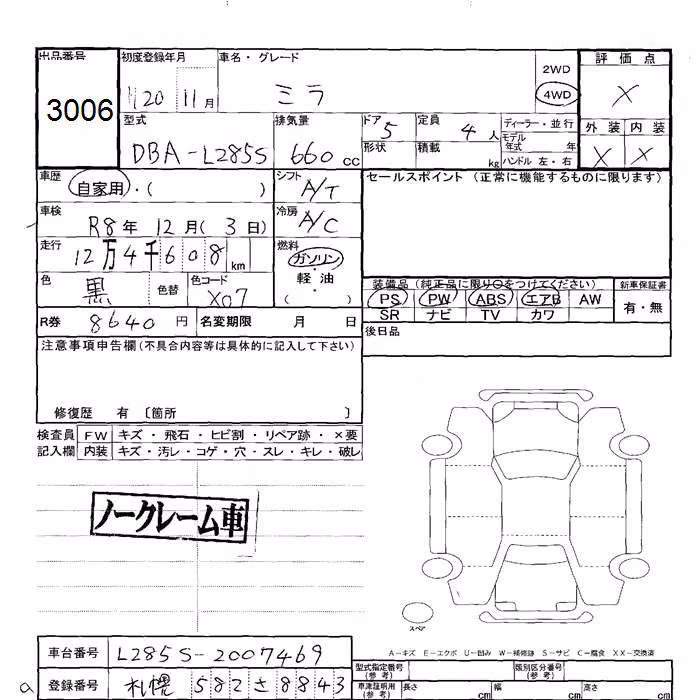 出品番号 初度登録年月 車名・グレード 評価点
3006 H20 11月 ミラ 2WD 4WD X
型式 排気量 ドア 定員 ディーラー・並行 外装 内装
DBA-L285S 660 cc 5 4人 モデル年式 年 X X
形状 積載 kg ハンドル 左・右
車歴 自家用・( ) シフト A/T セールスポイント (正常に機能するものに限ります)
車検 R8年 12月( 3日) 冷房 A/C
走行 12万4千608km 燃料 ガソリン・軽油・( )
色 黒 色替 色コード X07 装備品 (純正品に限り○をつけてください) 新車保証書
PS PW ABS エアB AW 有・無
SR ナビ TV カワ
R券 8640円 名変期限 月 日 後日品
注意事項申告欄(不具合内容等は具体的に記入して下さい)
修復歴 有 〔箇所 〕
検査員 FW キズ・飛石・ヒビ割・リペア跡・×要
記入欄 内装 キズ・汚レ・コゲ・穴・スレ・キレ・破レ
ノークレーム車
スペア
A-キズ E-エクボ U-凹み W-補修跡 S-サビ C-腐食 XX-交換済
車台番号 L285S-2007469 型式指定番号(参考) 類別区分番号(参考)
a 登録番号 札幌 582さ8843 車庫証明用(参考) 長さ cm 幅 cm 高さ cm